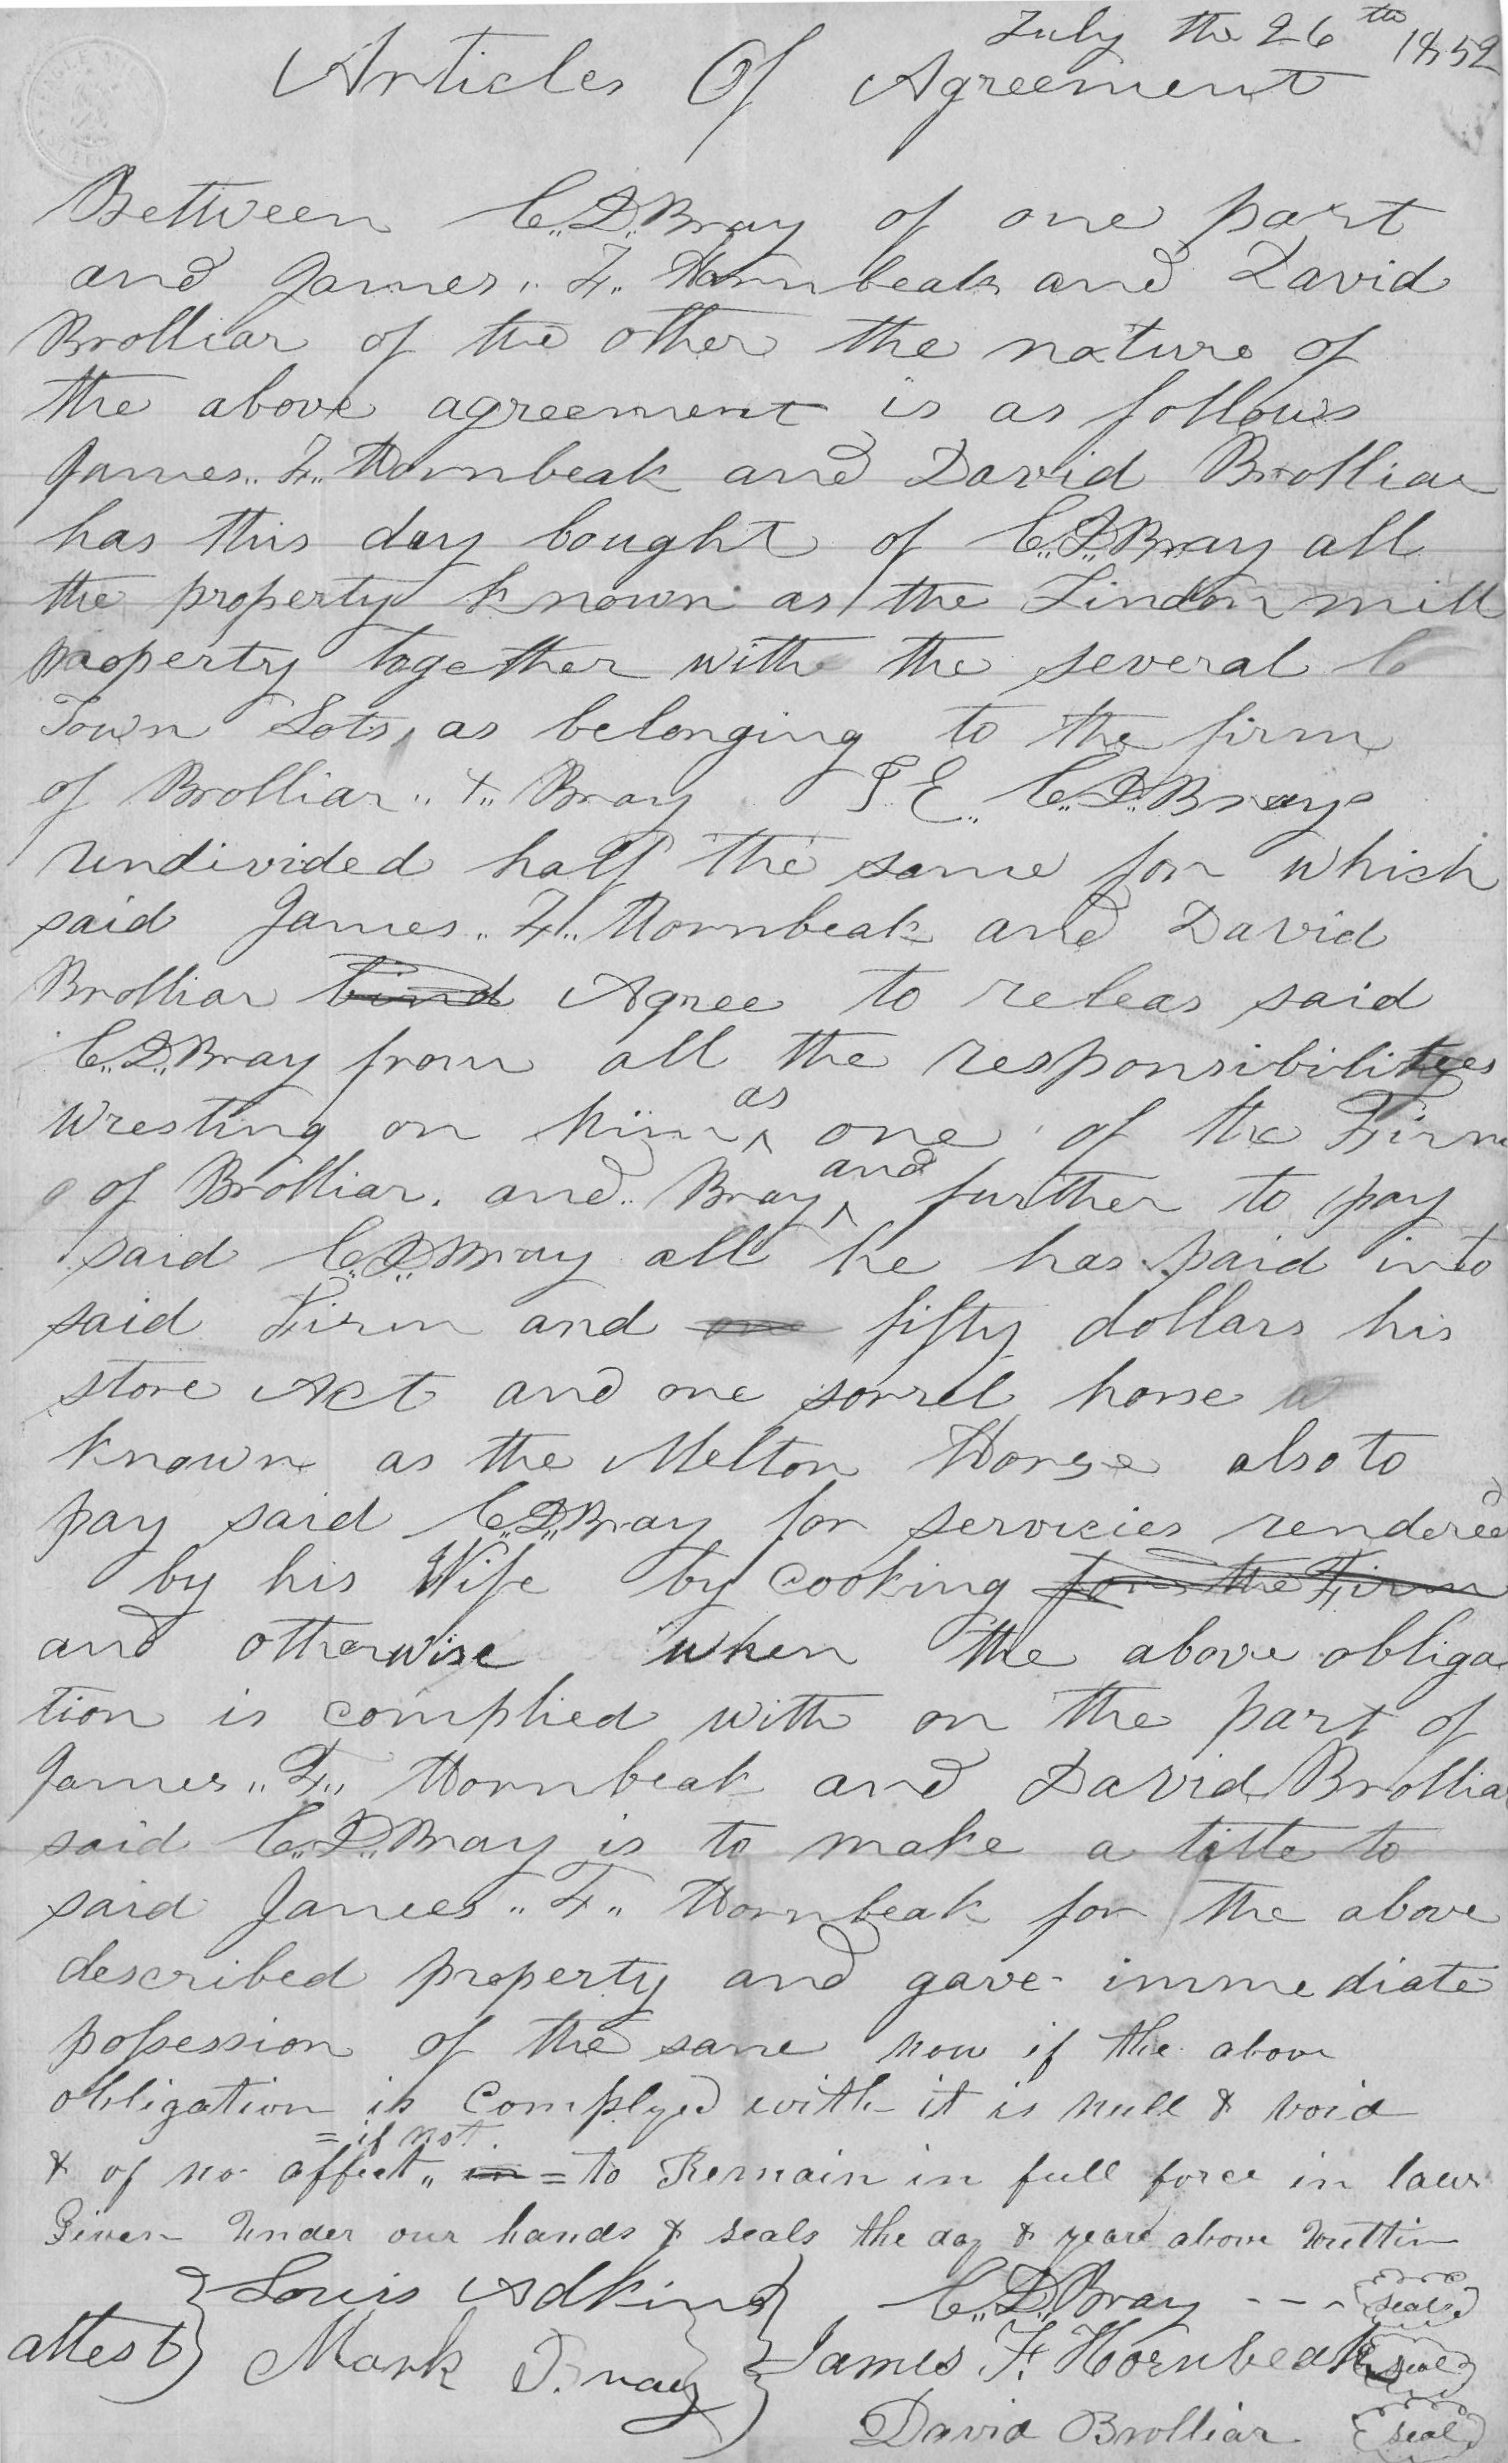 July the 26th 1852
Articles Of Agreement
Between C.D. Bray of one part
and James. F. Hornbeak and David
Brolliar of the other the nature of
the above agreement is as follows
James. F. Hornbeak and David Brolliar
has this day bought of C.D. Bray all
the property known as the Lindon mill
property together with the several
Town Lots, as belonging to the firm
of Brolliar & Bray I E C.D. Brays
undivided half the same for which
said James. F. Hornbeak and David
Brolliar bind Agree to releas said
C.D. Bray from all the responsibilities
wresting on him as one of the Firm
of Brolliar. and Bray and further to pay
said C.D. Bray all he has paid into
said Firm and one fifty dollars his
store Act and one sorrel horse
known as the Melton Horse also to
pay said C.D. Bray for servicies rendered
by his Wife by cooking for the Firm
and otherwise when the above obliga
tion is complied with on the part of
James. F. Hornbeak and David Brollia
said C.D. Bray is to make a title to
said James. F. Hornbeak for the above
described property and gave immediate
possession of the same now if the above
obligation is Complyed with it is null & void
= if not.
& of no affect, = to Remain in full force in law
Given Under our hands & seals the day & year above writtin
attest Louis Adkins C.D. Bray --- seal
Mark Bray James F. Hornbeak seal
David Brolliar seal